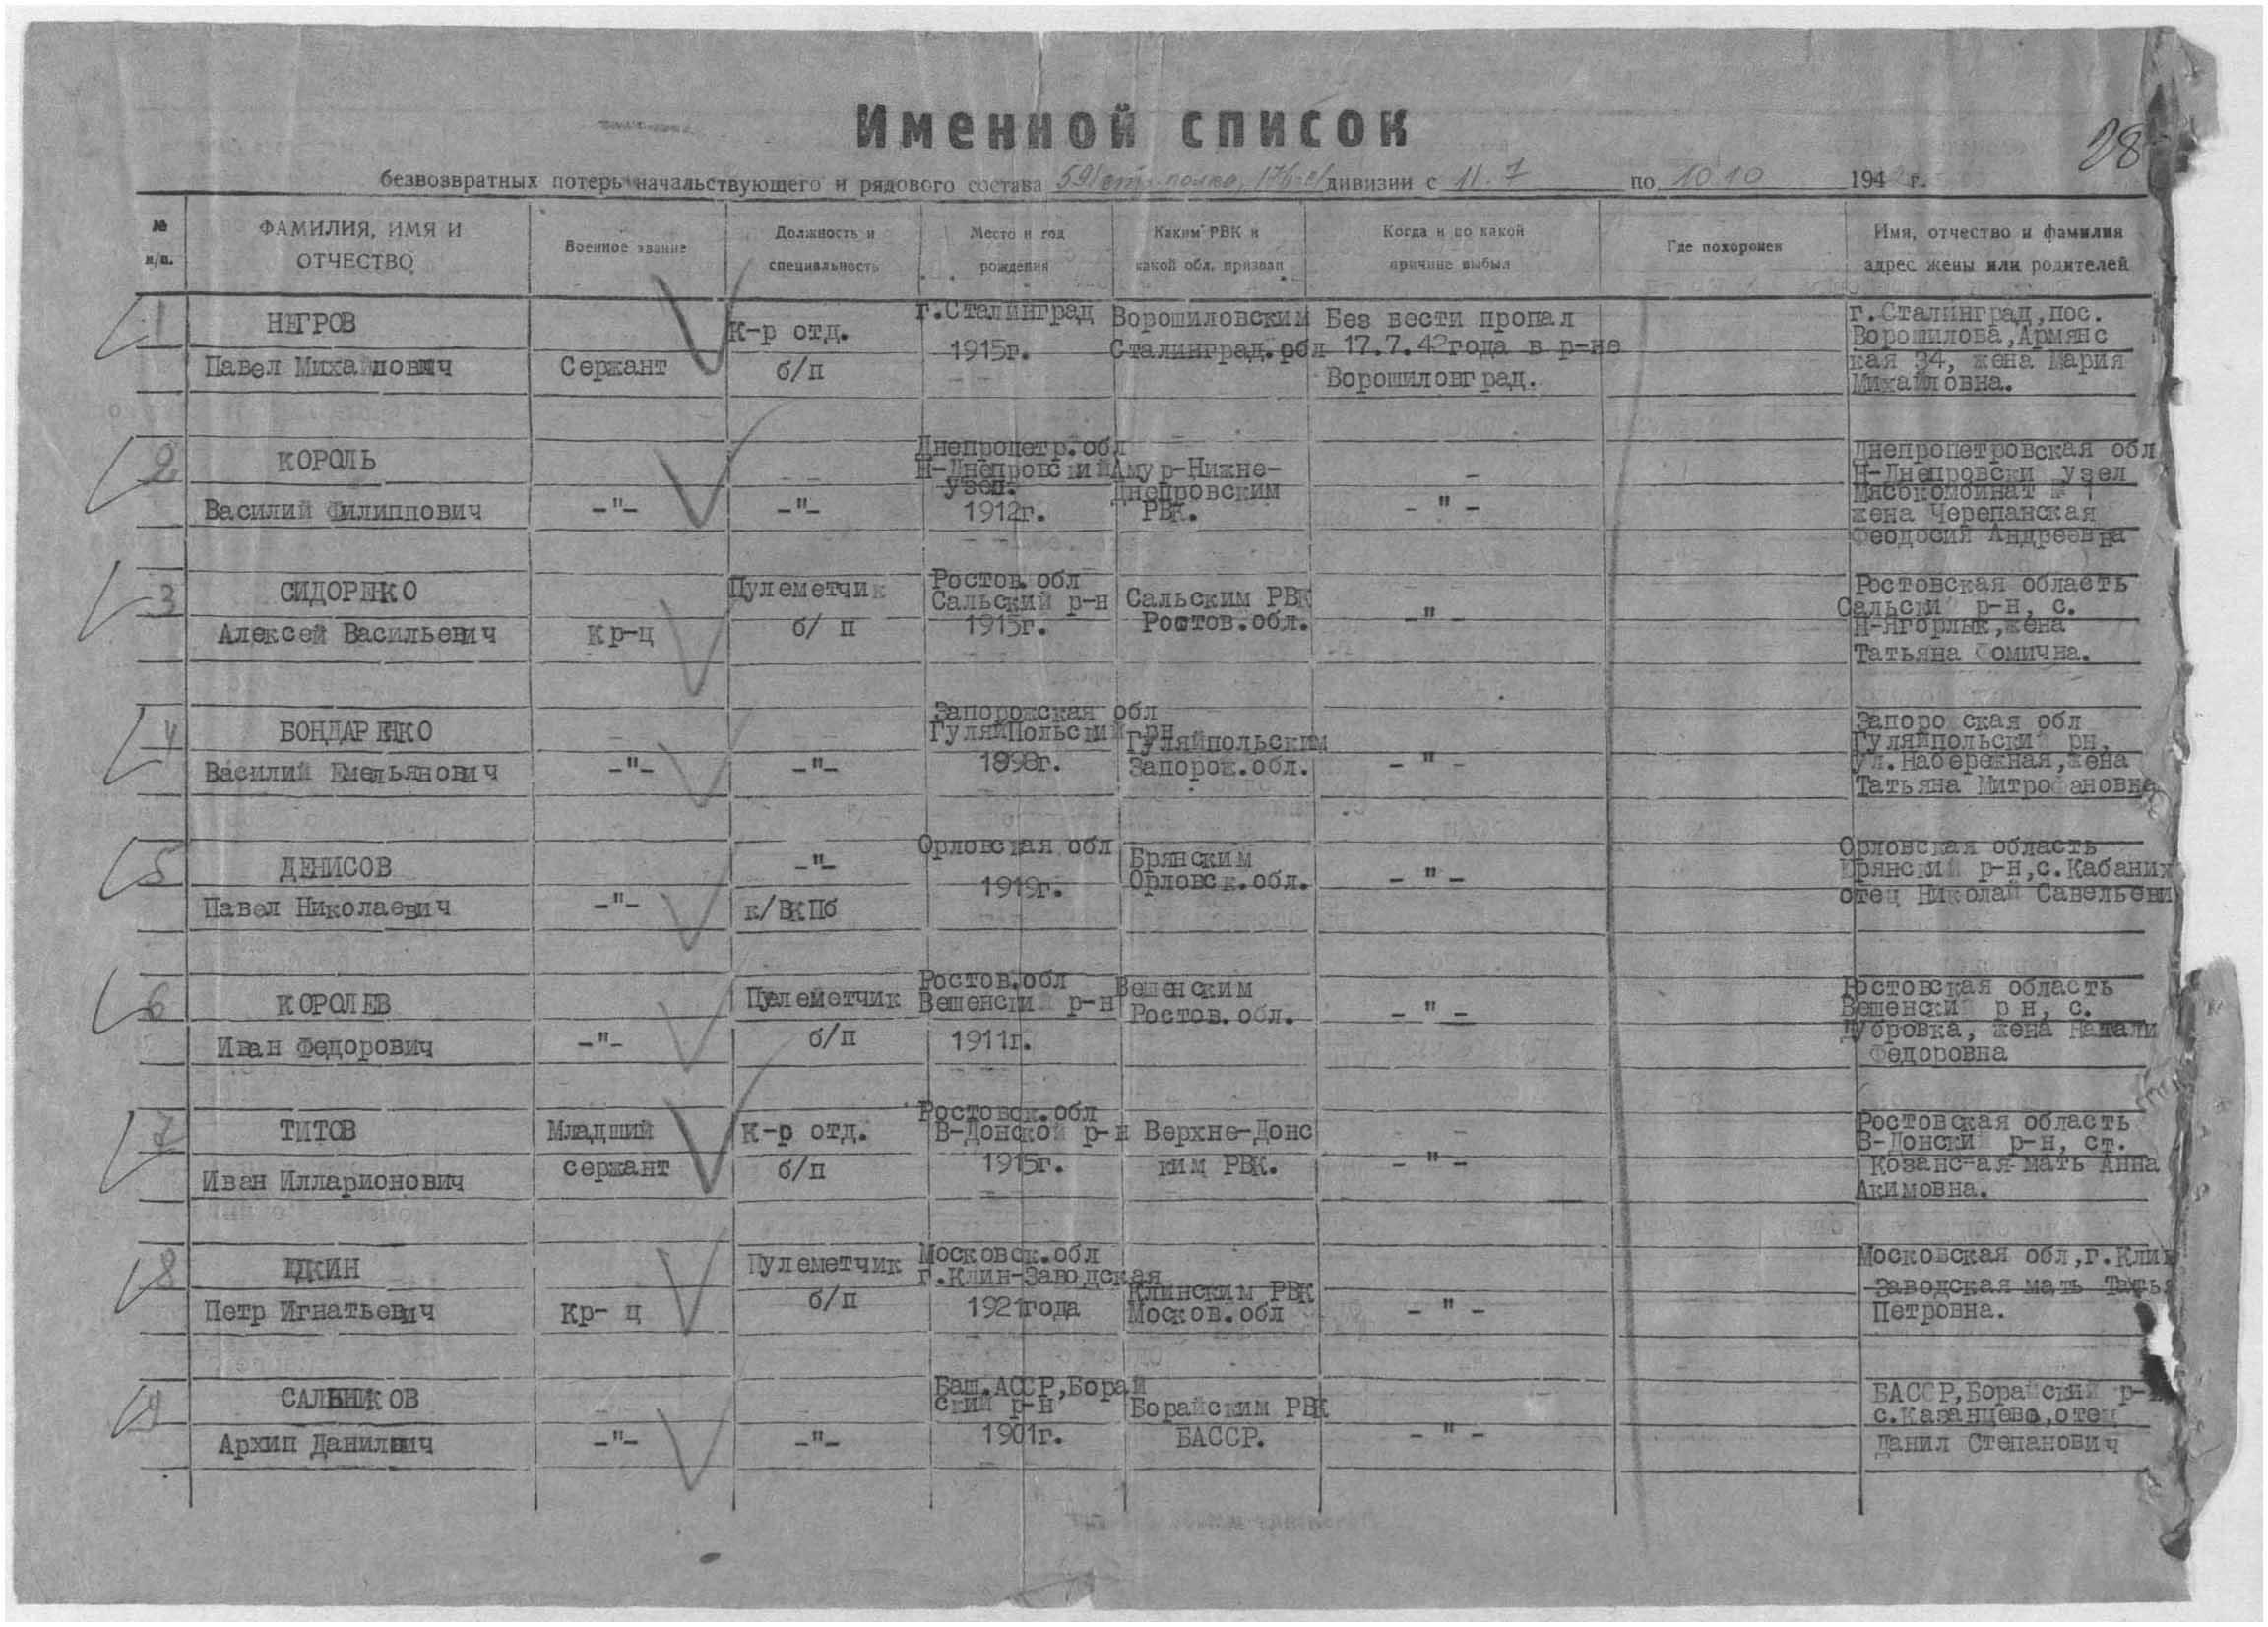 Именной список
28
безвозвратных потерь начальствующего и рядового состава 591 стр. полка, дивизии с 11.7 по 10.10 194 г.
№ п/п.
ФАМИЛИЯ, ИМЯ И ОТЧЕСТВО
Военное звание
Должность и специальность
Место и год рождения
Каким РВК и какой обл. призван
Когда и по какой причине выбыл
Где похоронен
Имя, отчество и фамилия адрес жены или родителей
1
НЕГРОВ
Павел Михайлович
Сержант
К-р отд.
б/п
г.Сталинград
1915г.
Ворошиловским
Сталинград.обл
Без вести пропал
17.7.42года в р-не
Ворошиловград.
г.Сталинград,пос.
Ворошилова,Армянс
кая 34, жена Мария
Михайловна.
2
КОРОЛЬ
Василий Филиппович
-"-
-"-
Днепропетр.обл
Н-Днепровский
узел.
1912г.
Амур-Нижне-
Днепровским
РВК.
- " -
Днепропетровская обл
Н-Днепровски узел
Мясокомбинат № 1
жена Черепанская
Феодосия Андреевна
3
СИДОРЕНКО
Алексей Васильевич
Кр-ц
Пулеметчик
б/ п
Ростов.обл
Сальский р-н
1915г.
Сальским РВК
Ростов.обл.
-"-
Ростовская область
Сальски р-н, с.
Н-Ягорлык,жена
Татьяна Фомична.
4
БОНДАРЕНКО
Василий Емельянович
-"-
-"-
Запорожская обл
ГуляйПольский рн
1898г.
Гуляйпольским
Запорож.обл.
- " -
Запоро ская обл
Гуляйпольский рн,
ул.Набережная,жена
Татьяна Митрофановна
5
ДЕНИСОВ
Павел Николаевич
-"-
-"-
к/ВКПб
Орловская обл
1919г.
Брянским
Орловск.обл.
- " -
Орловская область
Брянский р-н,с.Кабаних
отец Николай Савельеви
6
КОРОЛЕВ
Иван Федорович
-"-
Пулеметчик
б/п
Ростов.обл
Вешенский р-н
1911г.
Вешенским
Ростов.обл.
- " -
Ростовская область
Вешенский р н, с.
Дубровка, жена Натали
Федоровна
7
ТИТОВ
Иван Илларионович
Младший
сержант
К-р отд.
б/п
Ростовск.обл
В-Донской р-н
1915г.
Верхне-Донс
ким РВК.
- " -
Ростовская область
В-Донски р-н, ст.
Козанс-ая мать Анна
Акимовна.
8
ЮДКИН
Петр Игнатьевич
Кр- ц
Пулеметчик
б/п
Московск.обл
г.Клин-Заводская
1921года
Клинским РВК
Москов.обл
- " -
Московская обл,г.Клин
Заводская мать Татья
Петровна.
9
САЛЬНИКОВ
Архип Данилович
-"-
-"-
Баш.АССР,Борай
ский р-н
1901г.
Борайским РВК
БАССР.
- " -
БАССР,Борайский р-н
с.Казанцево,отец
Данил Степанович